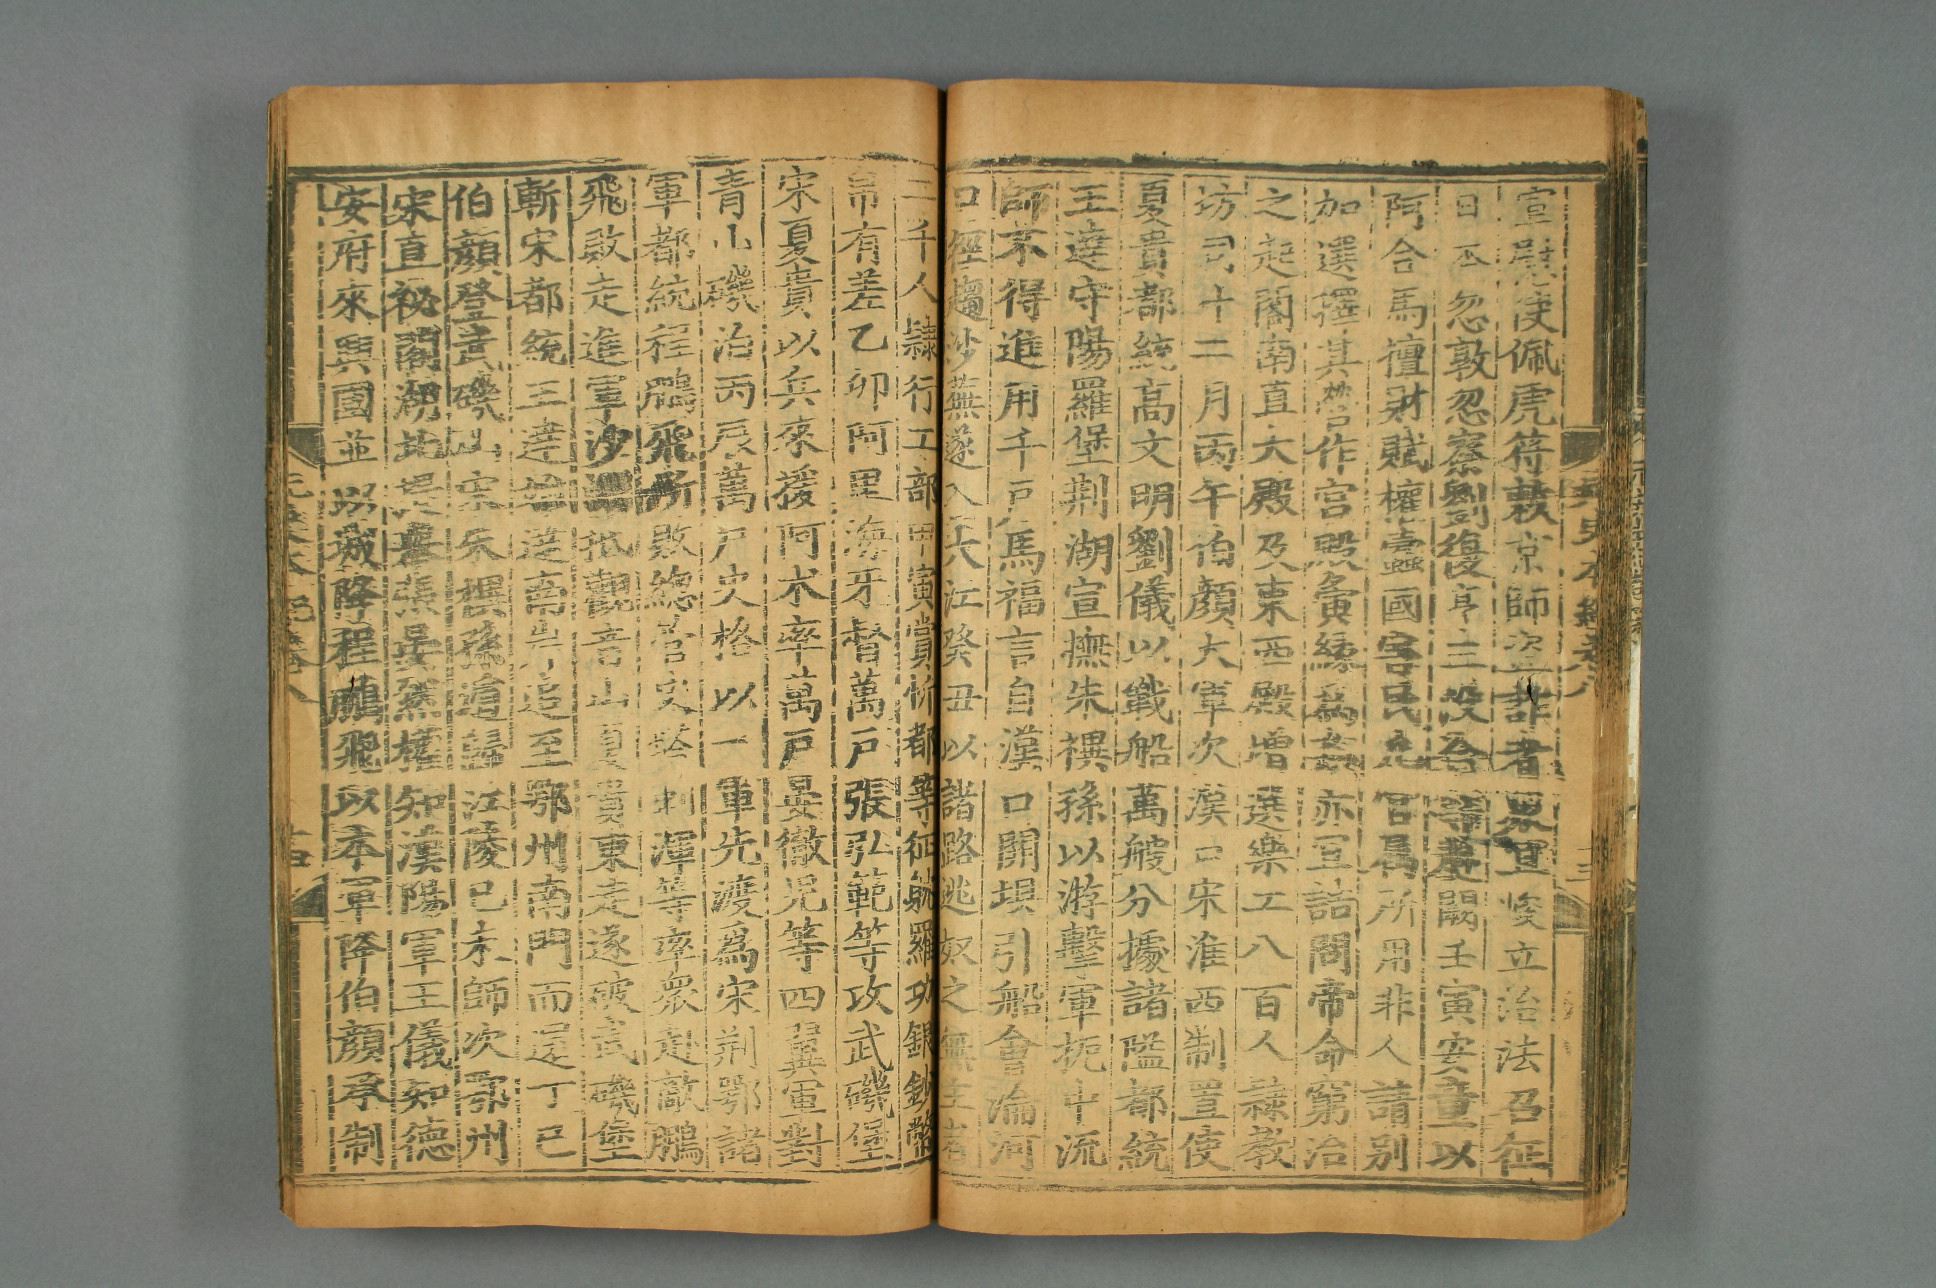 宣慰使佩虎符敕京師盗詐者眾宜峻立治法召征
日本忽敦忽察劉復亨三没合等赴闕壬寅安童以
阿合馬擅財賦權蠹國害民凡官屬所用非人請別
加選擇其營作宮殿夤緣為姦亦宜詰問帝命窮治
之起閣南直大殿及東西殿增選樂工八百人隸教
坊司十二月丙午伯顏大軍次漢口宋淮西制置使
夏貴都統高文明劉儀以戰船萬艘分據諸隘都統
王達守陽羅堡荆湖宣撫朱禩孫以游擊軍扼中流
師不得進用千戶馬福言自漢口開壩引船會淪河
口徑趨沙蕪遂入大江癸丑以諸路逃奴之無主者
二千人隸行工部甲寅賞忻都等征耽羅功銀鈔幣
帛有差乙卯阿里海牙督萬戶張弘範等攻武磯堡
宋夏貴以兵來援阿朮率萬戶晏徹兒等四翼軍對
青山磯泊丙辰萬戶史格以一軍先渡為宋荆鄂諸
軍都統程鵬飛所敗總管史塔剌渾等率眾赴敵鵬
飛敗走進軍沙洲抵觀音山夏貴東走遂破武磯堡
斬宋都統王達始達南岸追至鄂州南門而還丁巳
伯顏登武磯山宋朱禩孫遁歸江陵己未師次鄂州
宋直祕閣湖北提舉張晏然權知漢陽軍王儀知德
安府來興國並以城降程鵬飛以本軍降伯顏承制
元史本紀卷八
十三
元史本紀卷八
十四